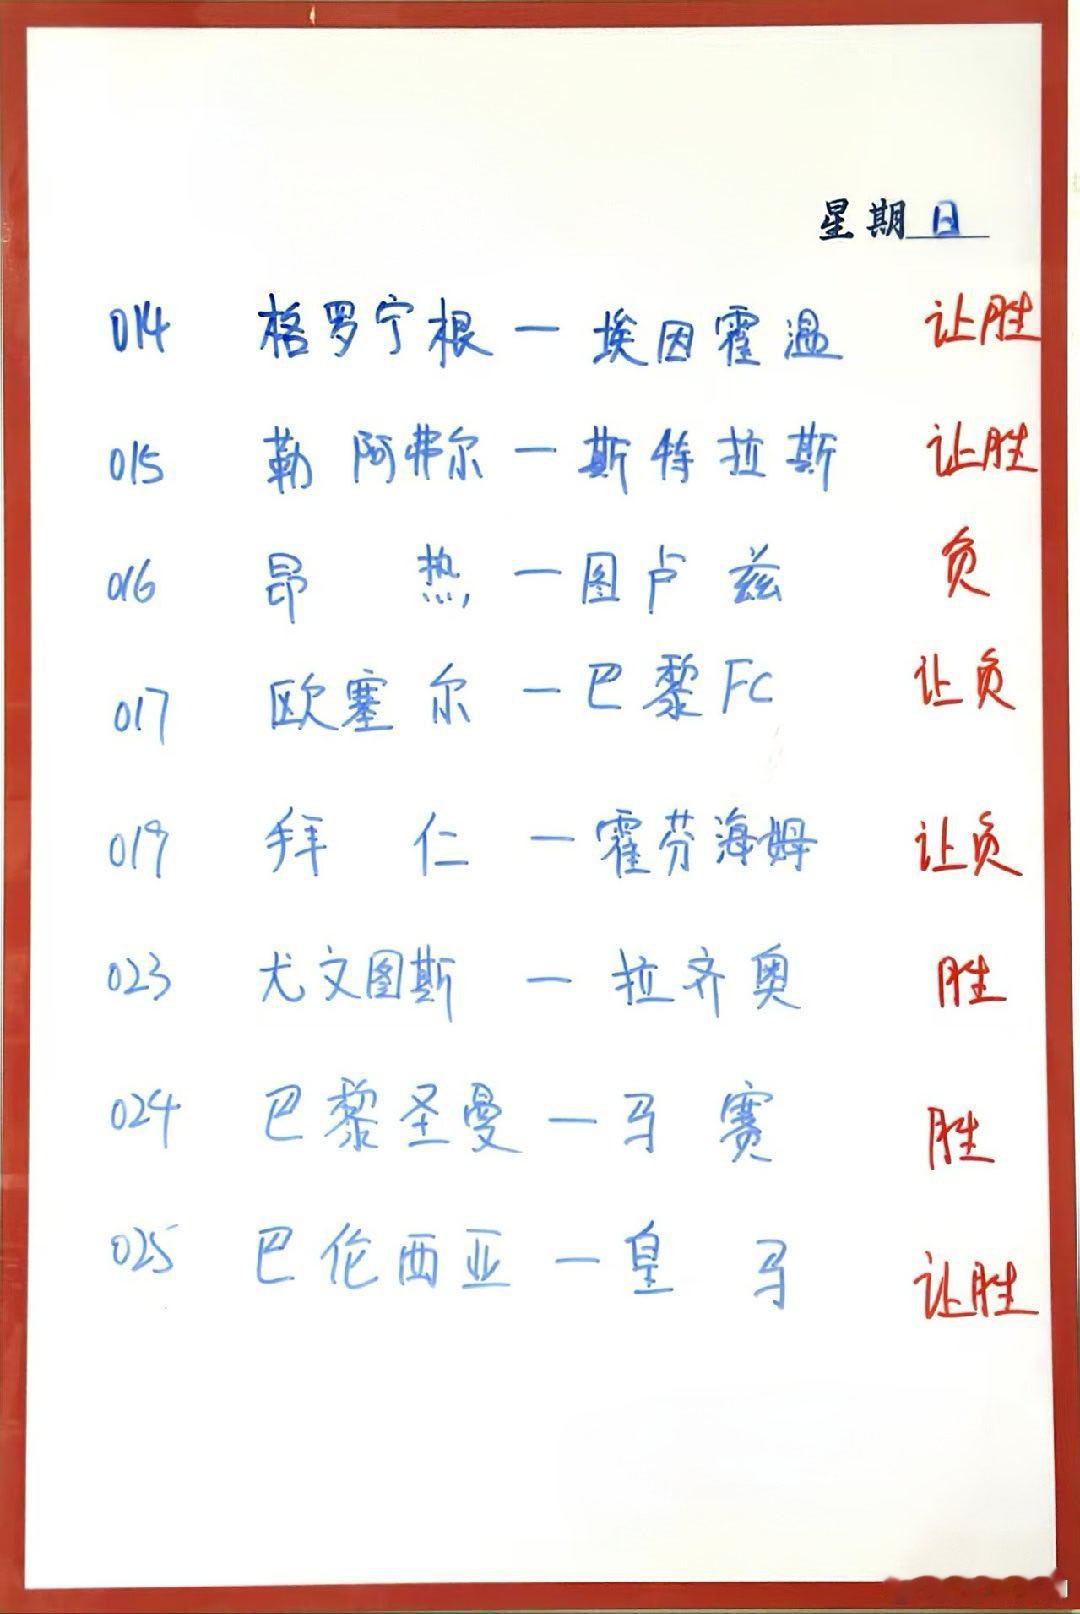 星期日
014 格罗宁根 — 埃因霍温 让胜
015 勒阿弗尔 — 斯特拉斯 让胜
016 昂热 — 图卢兹 负
017 欧塞尔 — 巴黎FC 让负
019 拜仁 — 霍芬海姆 让负
023 尤文图斯 — 拉齐奥 胜
024 巴黎圣曼 — 马赛 胜
025 巴伦西亚 — 皇马 让胜